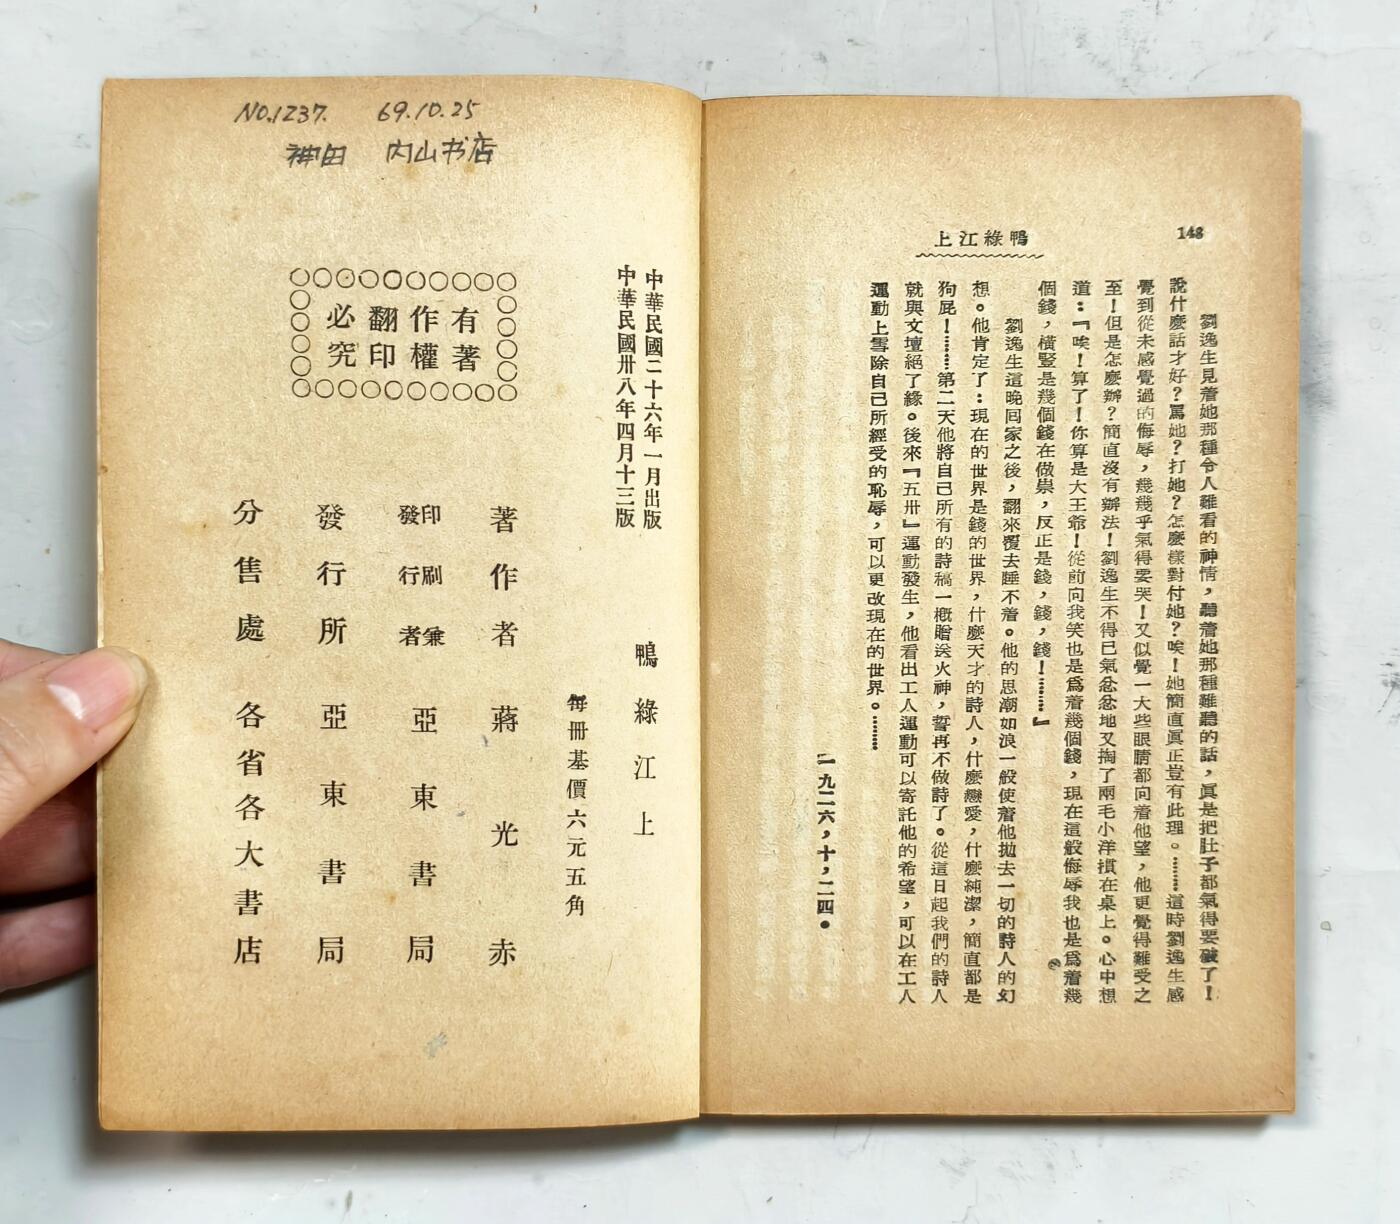 148
鴨綠江上
劉逸生見着她那種令人難看的神情，聽着她那種難聽的話，眞是把肚子都氣得要破了！
說什麽話才好？罵她？打她？怎麽樣對付她？唉！她簡直眞正豈有此理。………這時劉逸生感
覺到從未感覺過的侮辱，幾幾乎氣得要哭！又似覺一大些眼睛都向着他望，他更覺得難受之
至！但是怎麽辦？簡直沒有辦法！劉逸生不得已氣忿忿地又掏了兩毛小洋摜在桌上。心中想
道：『唉！算了！你算是大王爺！從前向我笑也是爲着幾個錢，現在這般侮辱我也是爲着幾
個錢，橫豎是幾個錢在做祟，反正是錢，錢，錢！………』
劉逸生這晚回家之後，翻來覆去睡不着。他的思潮如浪一般使着他拋去一切的詩人的幻
想。他肯定了：現在的世界是錢的世界，什麽天才的詩人，什麽戀愛，什麽純潔，簡直都是
狗屁！………第二天他將自己所有的詩稿一槪贈送火神，誓再不做詩了。從這日起我們的詩人
就與文壇絕了緣。後來『五卅』運動發生，他看出工人運動可以寄託他的希望，可以在工人
運動上雪除自己所經受的恥辱，可以更改現在的世界。………
一九二六，十，二四。
NO.1237. 69.10.25
神田 内山书店
中華民國二十六年一月出版
中華民國卅八年四月十三版
鴨綠江上
每冊基價六元五角
有著
作權
翻印
必究
著作者 蔣光赤
印刷兼
發行者 亞東書局
發行所 亞東書局
分售處 各省各大書店